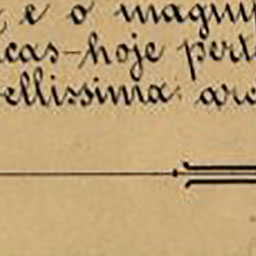 e o magnif
cas-hoje pert
ellissima: arc